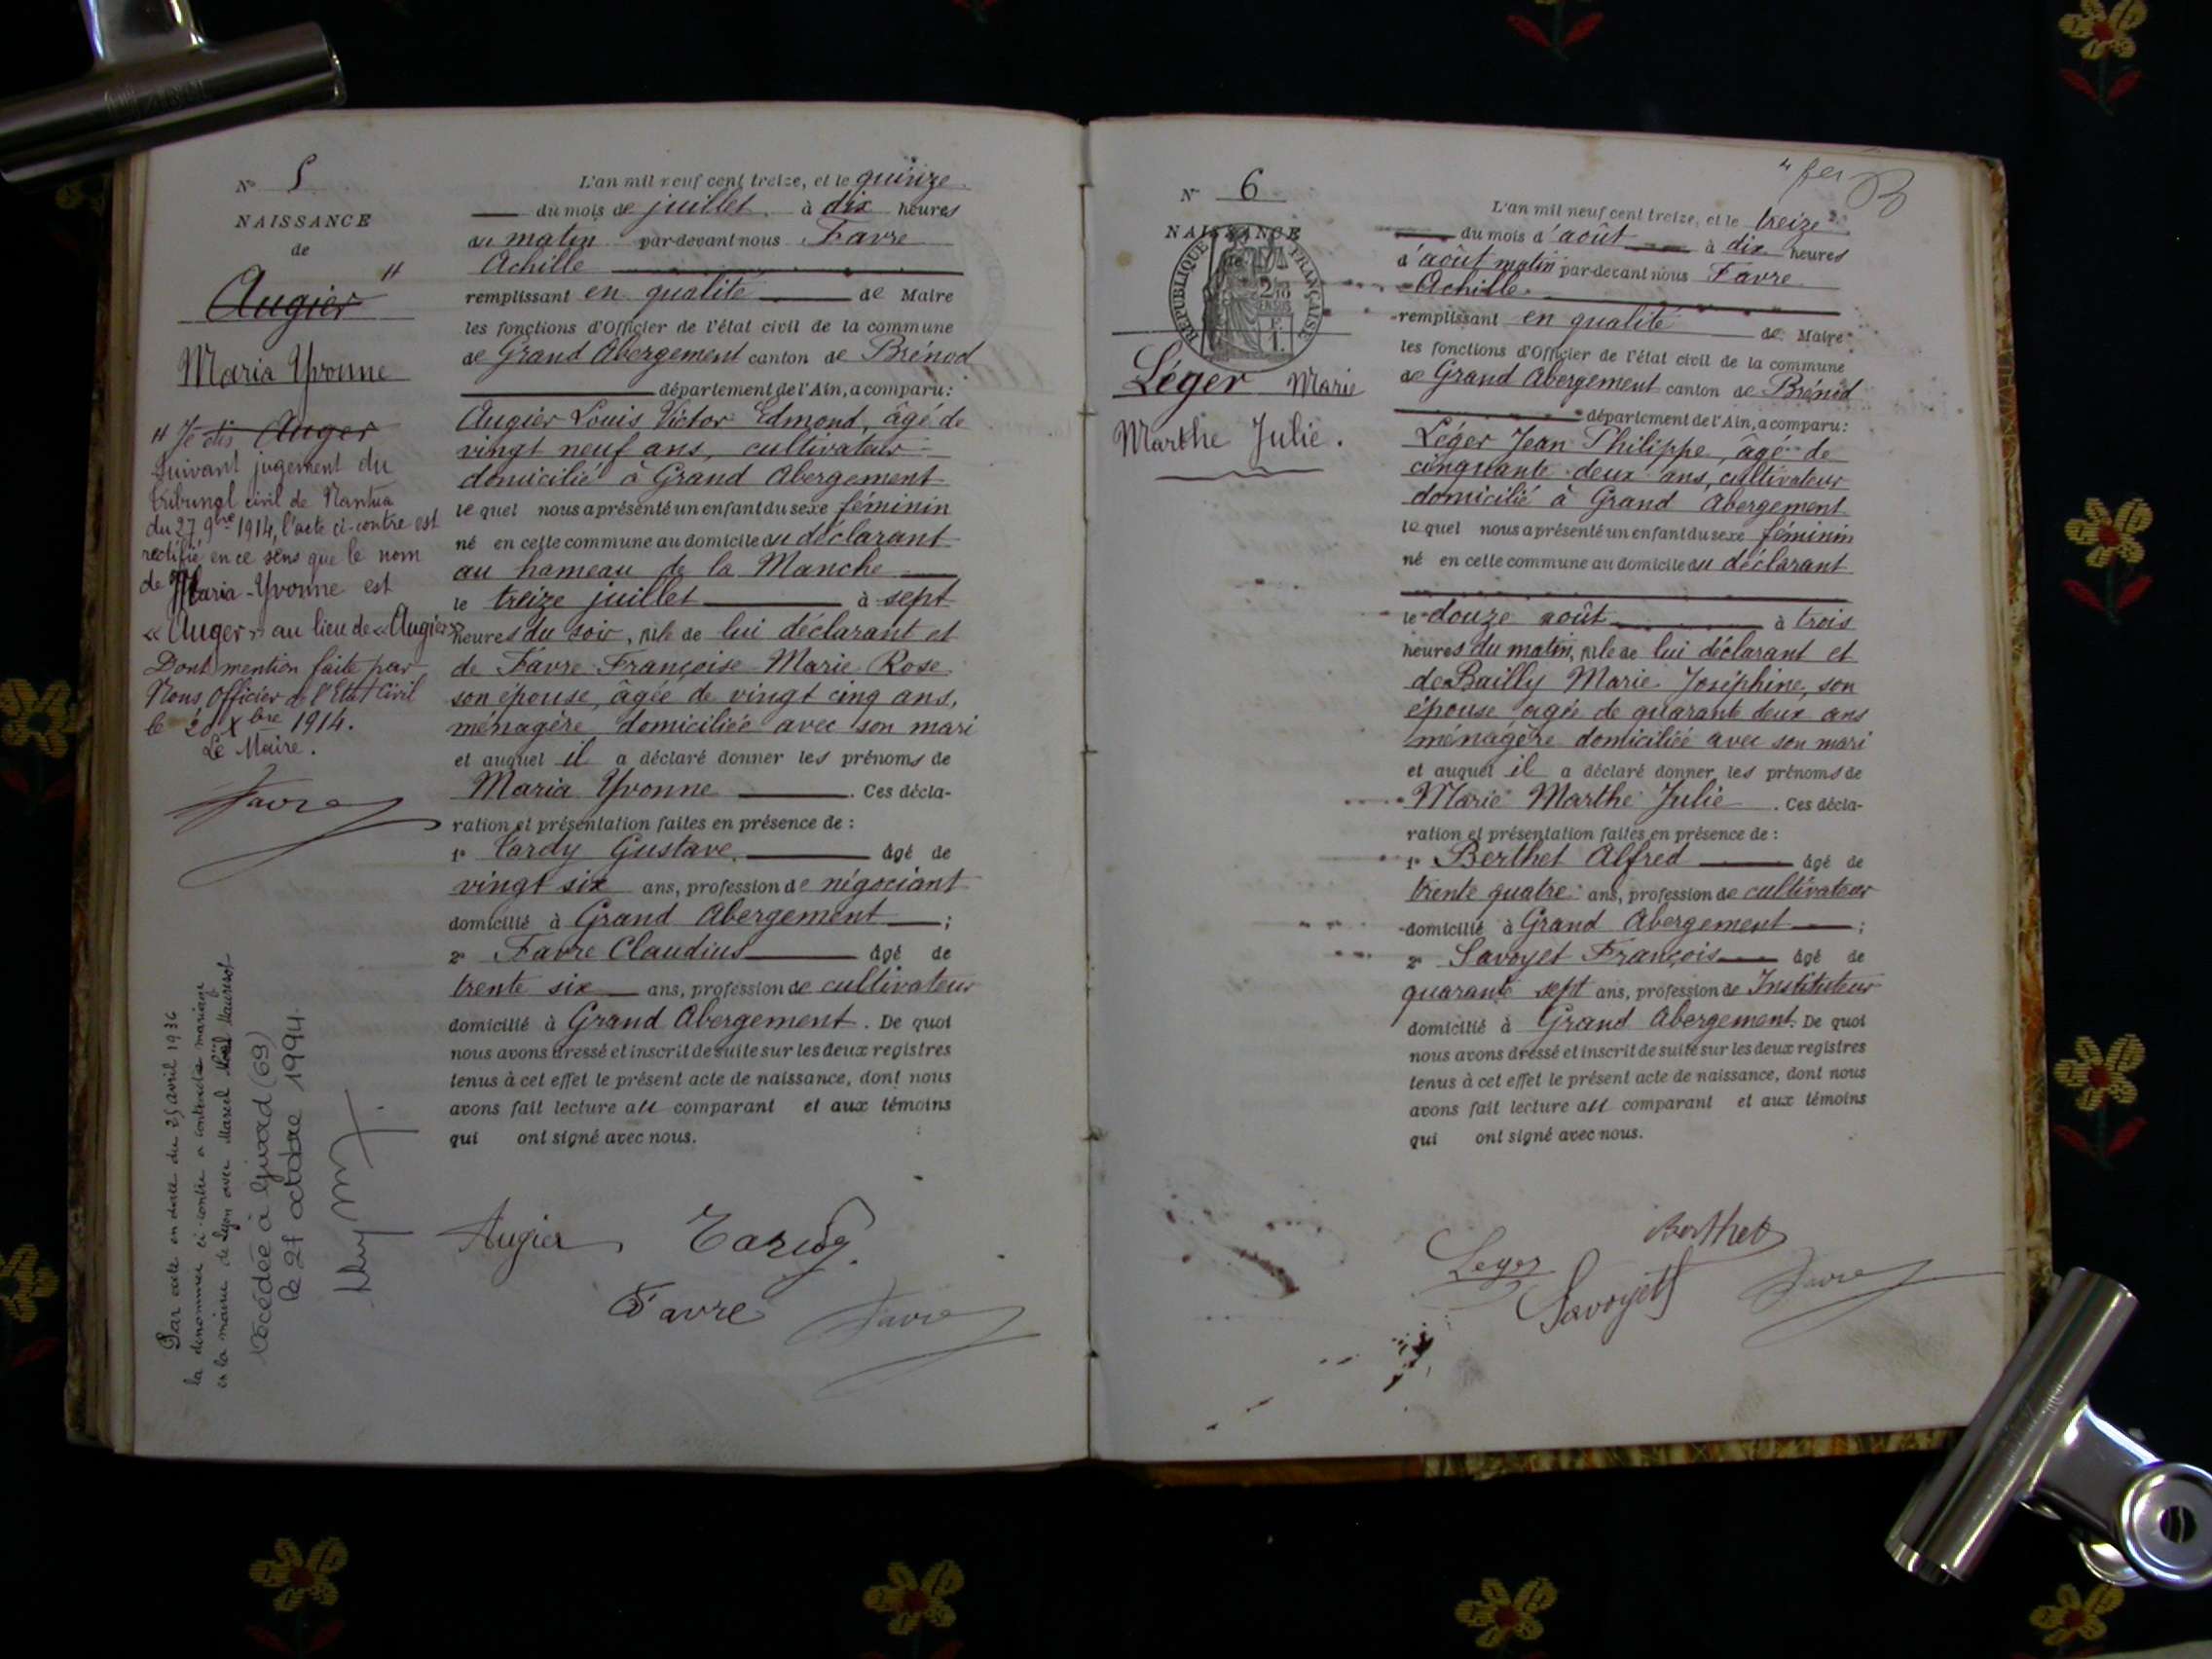 N° 5
NAISSANCE
de
Augier "
Maria Yvonne
" Je dis Auger
Suivant jugement du
tribunal civil de Nantua
du 27 9bre 1914, l'acte ci-contre est
rectifié en ce sens que le nom
de Maria-Yvonne est
« Auger » au lieu de « Augier »
Dont mention faite par
Nous, Officier de l'Etat Civil
le 20 Xbre 1914.
Le Maire.
Favre
Par acte en date du 25 avril 1936
la dénommée ci-contre a contracté mariage
en la mairie de Lyon avec Marcel Noël
Décédée à Givord (69)
le 21 octobre 1994.
L'an mil neuf cent treize, et le quinze
du mois de juillet à dix heures
du matin par-devant nous Favre
Achille
remplissant en qualité de Maire
les fonctions d'Officier de l'état civil de la commune
de Grand Abergement canton de Brénod
département de l'Ain, a comparu:
Augier Louis Victor Edmond, âgé de
vingt neuf ans, cultivateur
domicilié à Grand Abergement
lequel nous a présenté un enfant du sexe féminin
né en cette commune au domicile du déclarant
au hameau de la Manche
le treize juillet à sept
heures du soir, fille de lui déclarant et
de Favre Françoise Marie Rose
son épouse, âgée de vingt cinq ans,
ménagère domiciliée avec son mari
et auquel il a déclaré donner les prénoms de
Maria Yvonne . Ces décla-
ration et présentation faites en présence de :
1° Tardy Gustave, âgé de
vingt six ans, profession de négociant
domicilié à Grand Abergement ;
2° Favre Claudius âgé de
trente six ans, profession de cultivateur
domicilié à Grand Abergement . De quoi
nous avons dressé et inscrit de suite sur les deux registres
tenus à cet effet le présent acte de naissance, dont nous
avons fait lecture au comparant et aux témoins
qui ont signé avec nous.
Augier Tardy
Favre Favre
4 fev
N° 6
NAISSANCE
de
RÉPUBLIQUE FRANÇAISE
Léger Marie
Marthe Julie.
L'an mil neuf cent treize, et le treize
du mois d'août à dix heures
d'août matin par-devant nous Favre
Achille
remplissant en qualité de Maire
les fonctions d'Officier de l'état civil de la commune
de Grand Abergement canton de Brénod
département de l'Ain, a comparu:
Léger Jean Philippe, âgé de
cinquante deux ans, cultivateur
domicilié à Grand Abergement
lequel nous a présenté un enfant du sexe féminin
né en cette commune au domicile du déclarant
le douze août à trois
heures du matin, fille de lui déclarant et
de Bailly Marie Joséphine, son
épouse âgée de quarante deux ans
ménagère domiciliée avec son mari
et auquel il a déclaré donner les prénoms de
Marie Marthe Julie . Ces décla-
ration et présentation faites en présence de :
1° Berthet Alfred âgé de
trente quatre ans, profession de cultivateur
domicilié à Grand Abergement ;
2° Savoyet François âgé de
quarante sept ans, profession de Instituteur
domicilié à Grand Abergement. De quoi
nous avons dressé et inscrit de suite sur les deux registres
tenus à cet effet le présent acte de naissance, dont nous
avons fait lecture au comparant et aux témoins
qui ont signé avec nous.
Berthet
Leger
Savoyet Favre